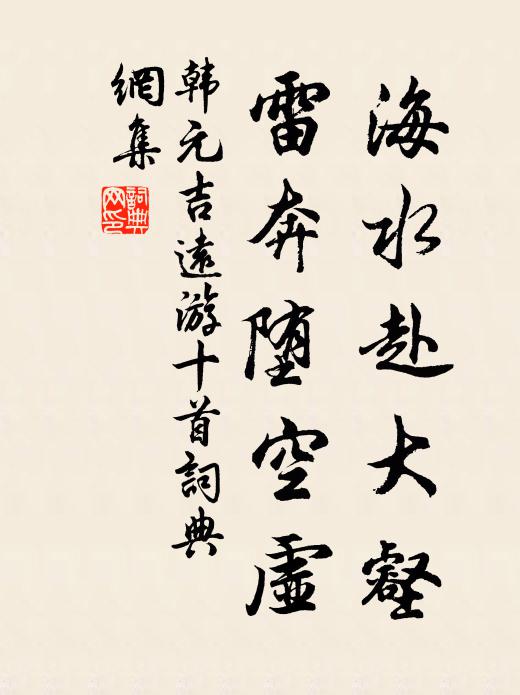 海水赴大壑
雷奔堕空虛
韩元吉遠游十首詞典
網集
詞典网印